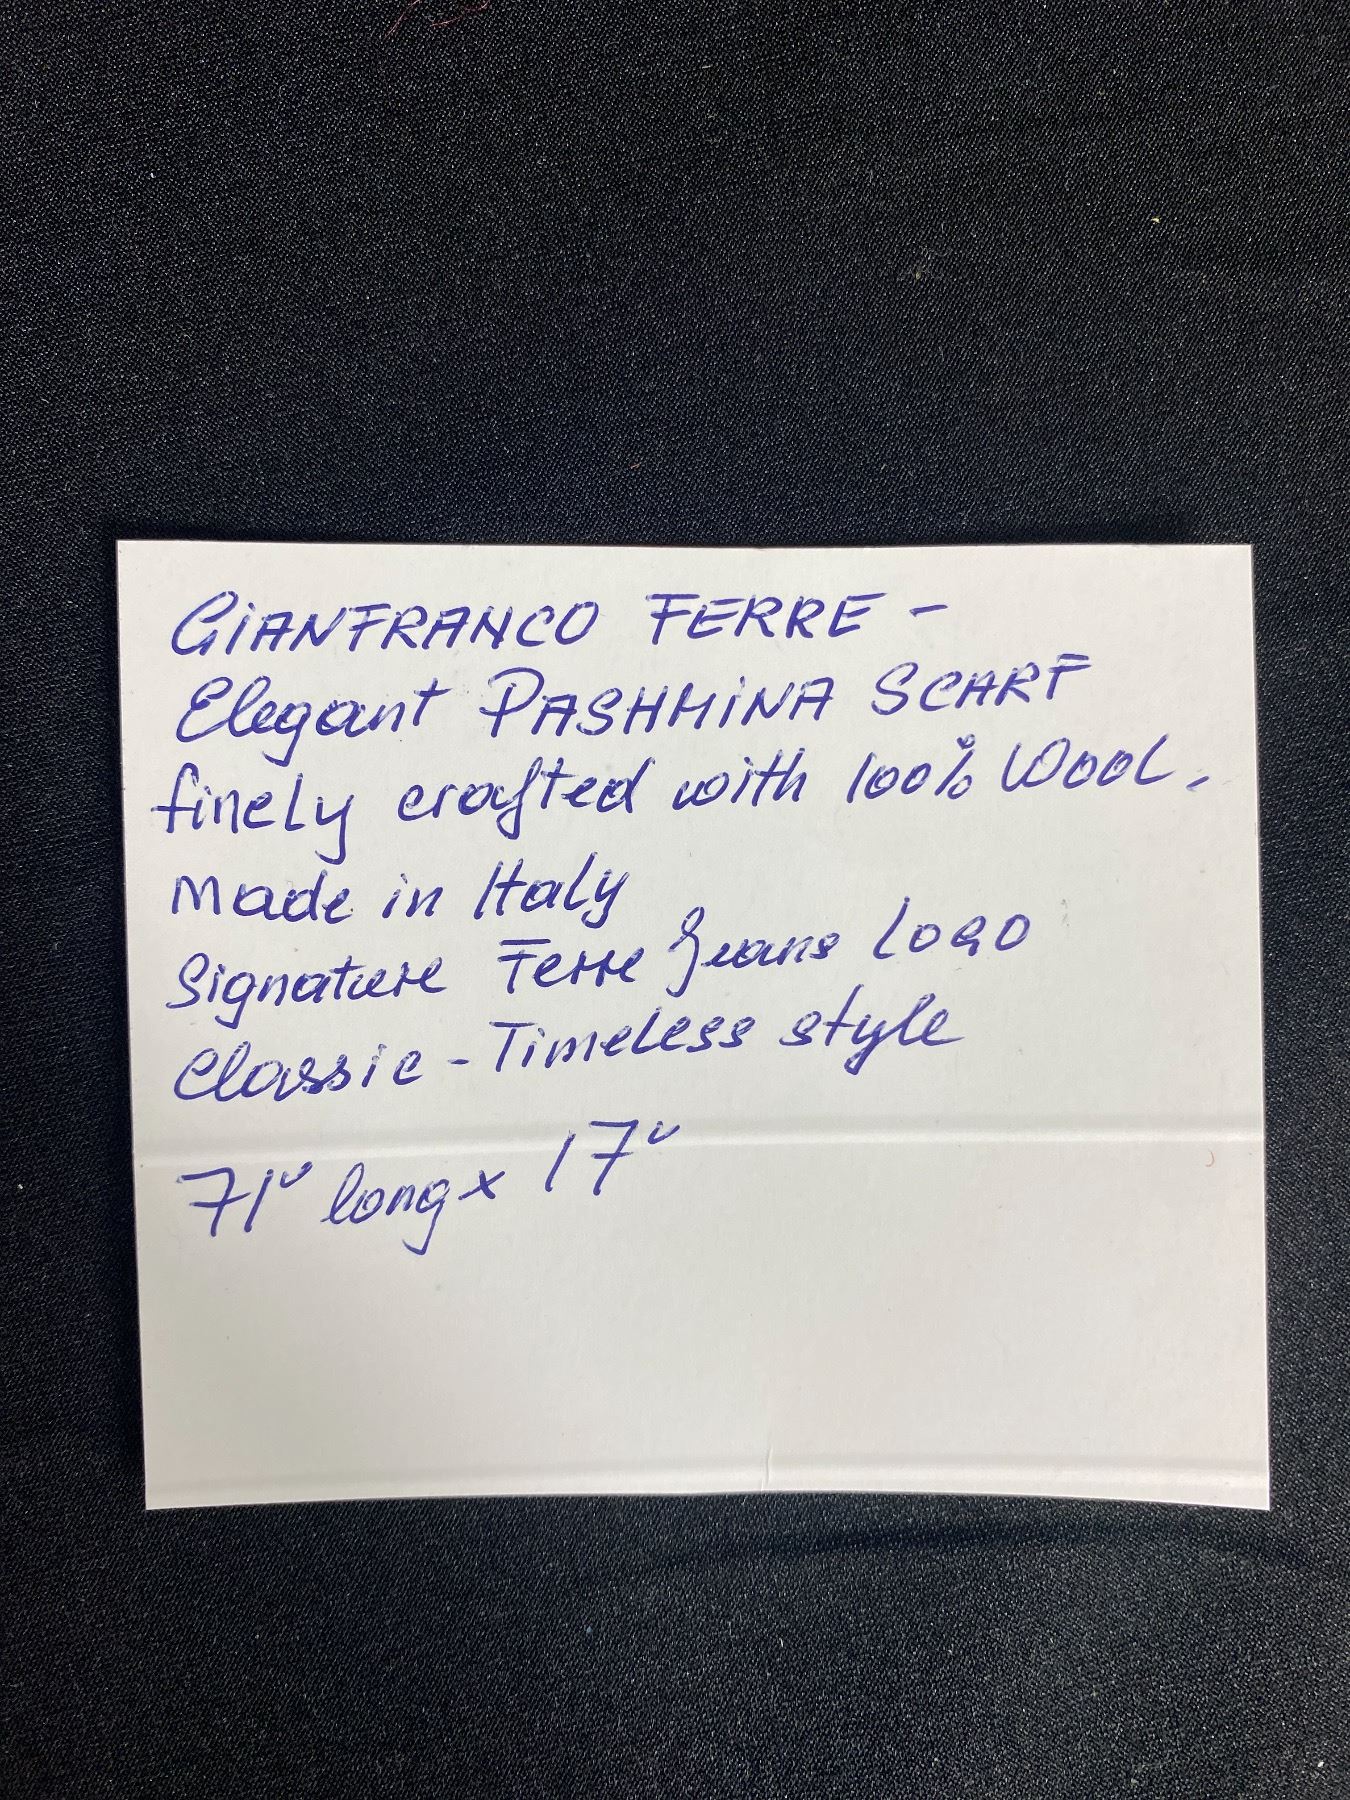 GIANFRANCO FERRE -
Elegant PASHMINA SCARF
finely crafted with 100% Wool.
Made in Italy
Signature Ferre Jeans Logo
Classic - Timeless style
71" long x 17"